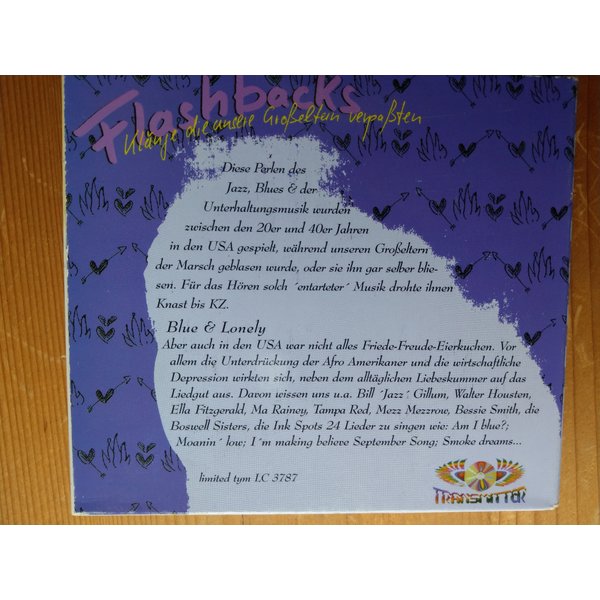 Flashbacks
Klänge die unsere Großeltern verpaßten
Diese Perlen des
Jazz, Blues & der
Unterhaltungsmusik wurden
zwischen den 20er und 40er Jahren
in den USA gespielt, während unseren Großeltern
der Marsch geblasen wurde, oder sie ihn gar selber blie-
sen. Für das Hören solch ´entarteter´ Musik drohte ihnen
Knast bis KZ.
Blue & Lonely
Aber auch in den USA war nicht alles Friede-Freude-Eierkuchen. Vor
allem die Unterdrückung der Afro Amerikaner und die wirtschaftliche
Depression wirkten sich, neben dem alltäglichen Liebeskummer auf das
Liedgut aus. Davon wissen uns u.a. Bill ´Jazz´ Gillum, Walter Housten,
Ella Fitzgerald, Ma Rainey, Tampa Red, Mezz Mezzrow, Bessie Smith, die
Boswell Sisters, die Ink Spots 24 Lieder zu singen wie: Am I blue?;
Moanin´ low; I´m making believe September Song; Smoke dreams...
limited tym LC 3787
TRANSMITTER